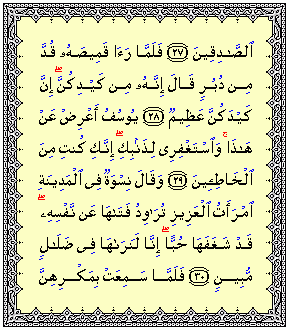 ٱلصَّـٰدِقِينَ ﴿٢٧﴾ فَلَمَّا رَءَا قَمِيصَهُۥ قُدَّ
مِن دُبُرٍ قَالَ إِنَّهُۥ مِن كَيْدِكُنَّ ۖ إِنَّ
كَيْدَكُنَّ عَظِيمٌ ﴿٢٨﴾ يُوسُفُ أَعْرِضْ عَنْ
هَـٰذَا ۚ وَٱسْتَغْفِرِى لِذَنۢبِكِ ۖ إِنَّكِ كُنتِ مِنَ
ٱلْخَاطِـِٔينَ ﴿٢٩﴾ وَقَالَ نِسْوَةٌ فِى ٱلْمَدِينَةِ
ٱمْرَأَتُ ٱلْعَزِيزِ تُرَٰوِدُ فَتَىٰهَا عَن نَّفْسِهِۦ ۖ
قَدْ شَغَفَهَا حُبًّا ۖ إِنَّا لَنَرَىٰهَا فِى ضَلَـٰلٍ
مُّبِينٍ ﴿٣٠﴾ فَلَمَّا سَمِعَتْ بِمَكْرِهِنَّ